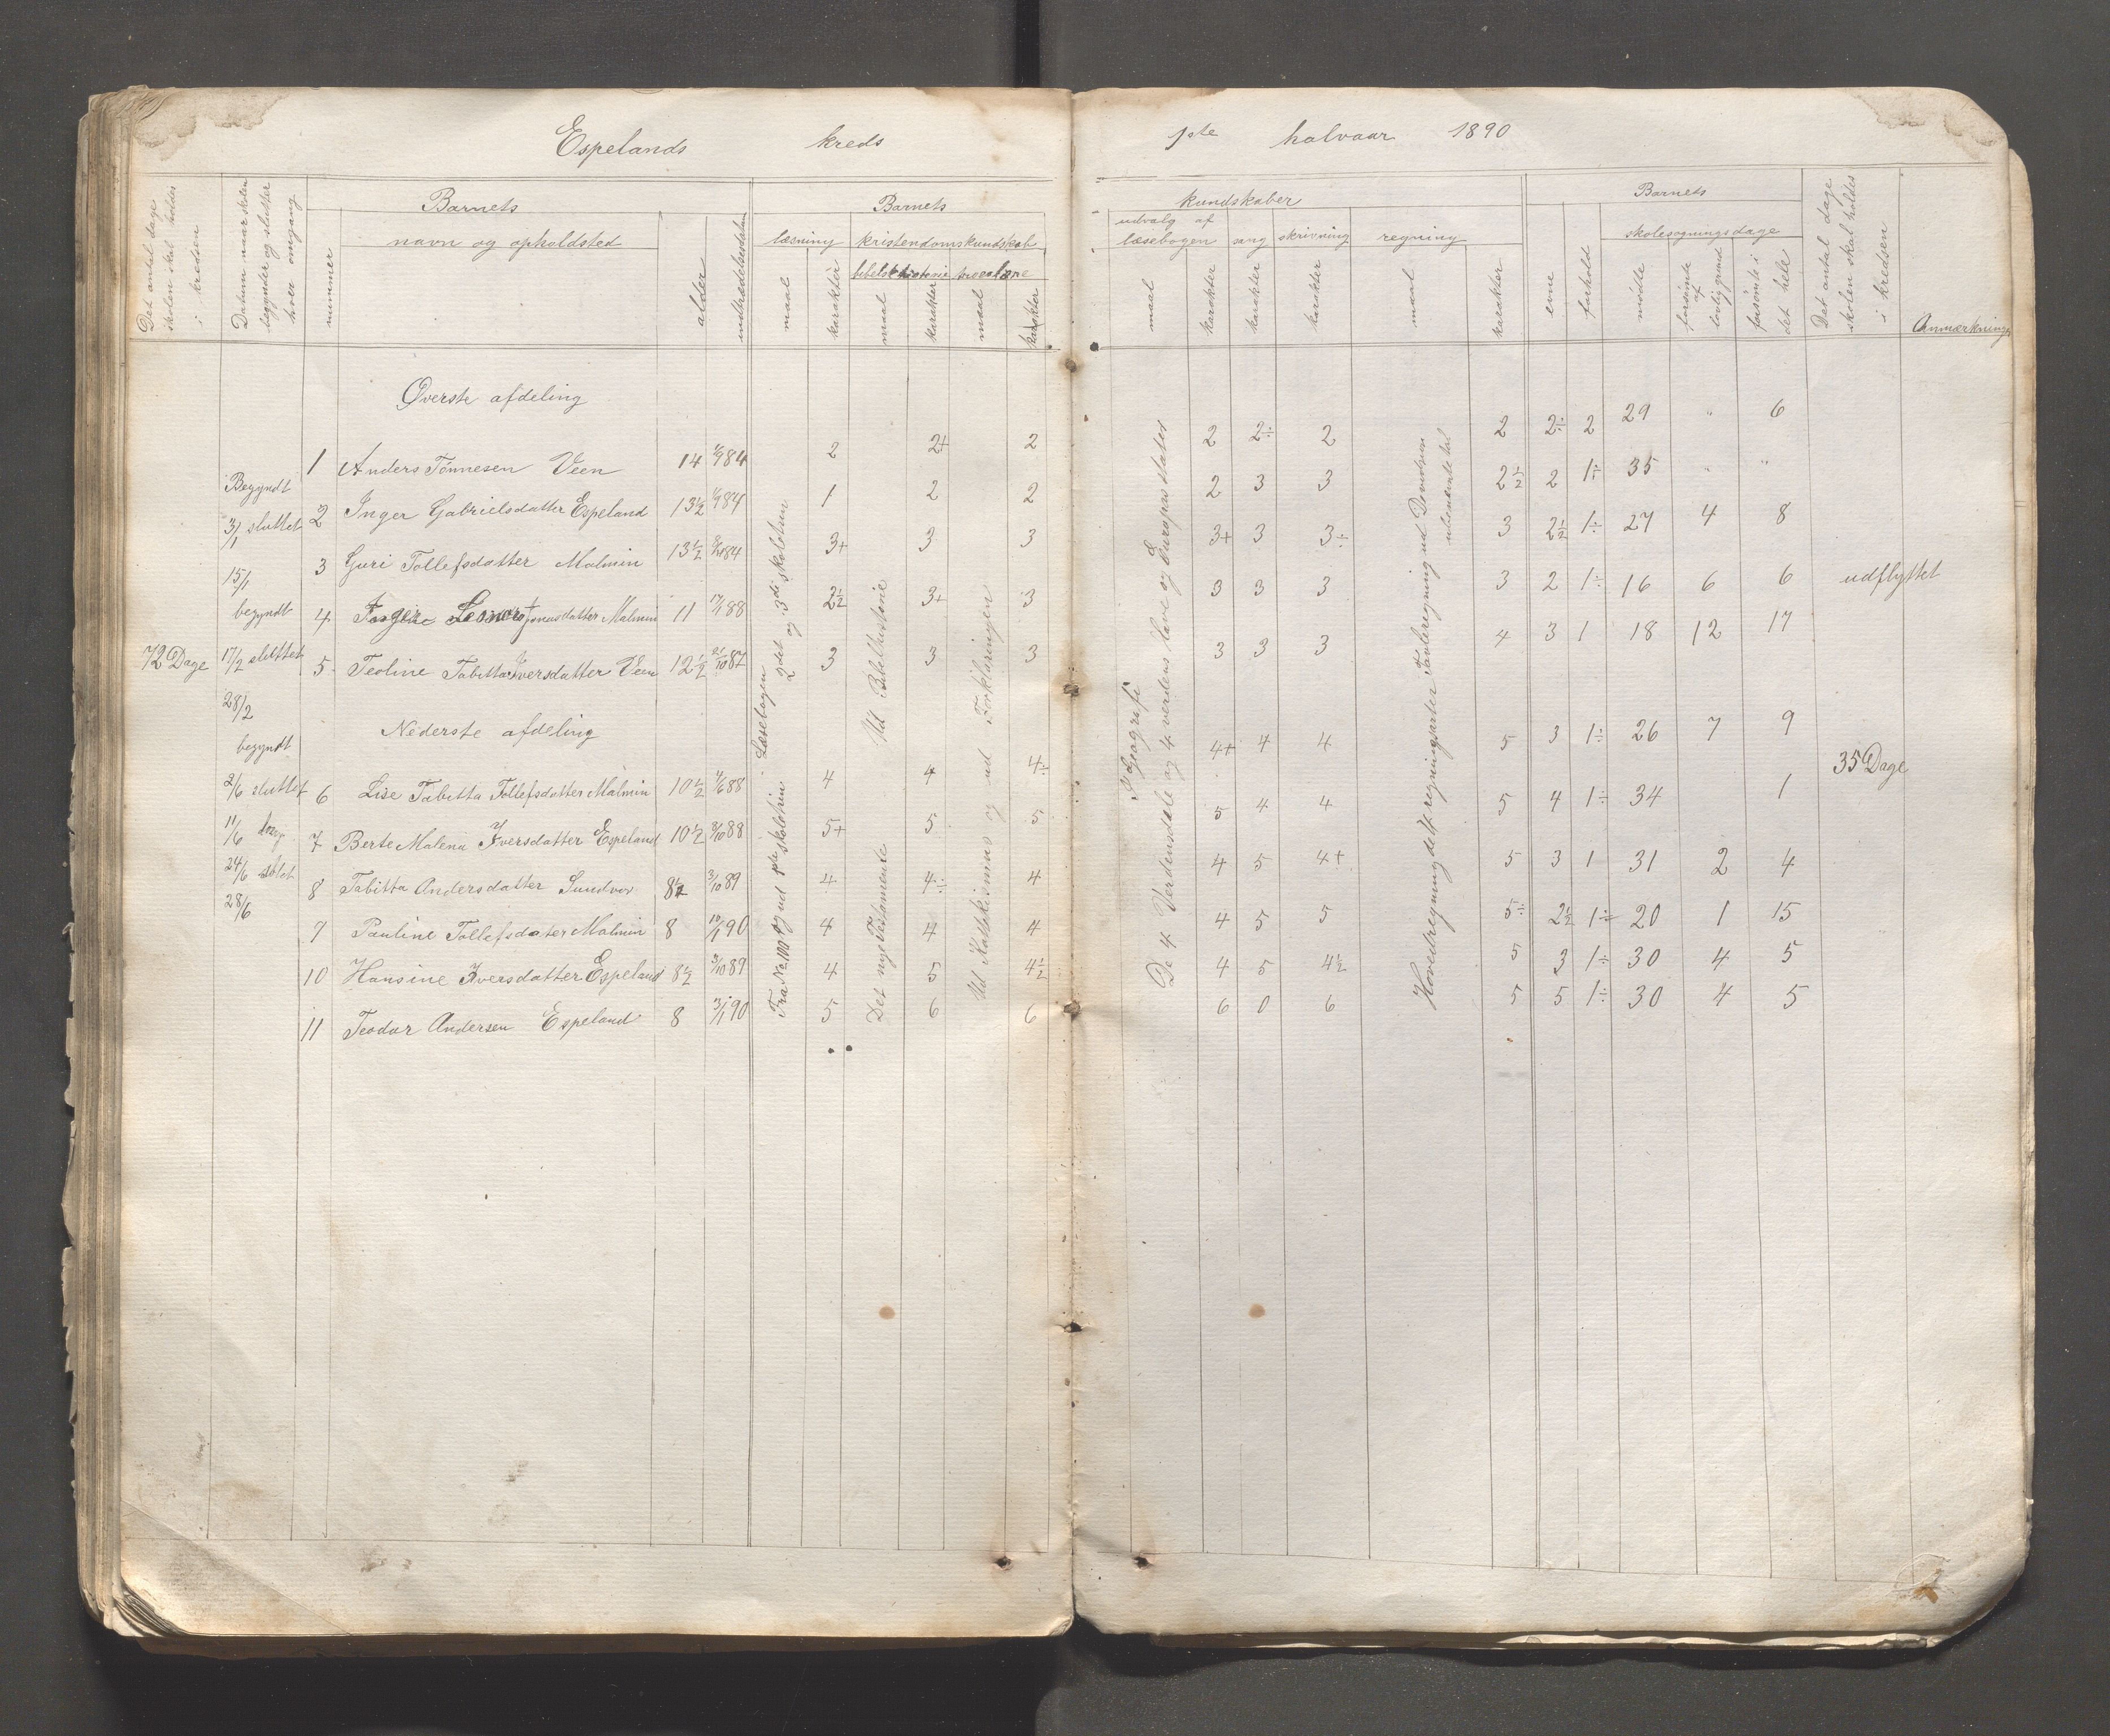 Espelands kreds 1ste halvaar 1890
Det antal dage skolen skal holdes i kredsen
Datum naar skolen begynder og slutter hver omgang
Barnets
nummer
navn og opholdsted
alder
indtrædelsesdatum
Barnets
læsning kristendomskundskab
bibelshistorie troeslære
maal karakter maal karakter maal karakter
kundskaber
udvalg af læsebogen sang skrivning regning
maal karakter karakter karakter maal karakter
Barnets
evne forhold
skolesøgningsdage
mødte
forsømte af lovlig grund
forsømte i det hele
Det antal dage skolen skal holdes i kredsen
Anmærkning
Øverste afdeling
1 Anders Tønnesen Veen 14 84 2 2+ 2 2 2÷ 2 2 2÷ 2 29 " 6
2 Inger Gabrielsdatter Espeland 13½ 84 1 2 2 2 3 3 2½ 2 1÷ 35 " "
3 Guri Tollefsdatter Malmin 13½ 84 3+ 3 3 3+ 3 3÷ 3 2½ 1÷ 27 4 8
4 Jonasdatter Malmin 11 17/1 88 2½ 3+ 3 3 3 3 3 2 1÷ 16 6 6 udflyttet
5 Teoline Tabitta Iversdatter Veen 12½ 21/10 87 3 3 3 3 3 3 4 3 1 18 12 17
Nederste afdeling
6 Lise Tabitta Tollefsdatter Malmin 10½ 4/6 88 4 4 4÷ 4+ 4 4 5 3 1÷ 26 7 9
7 Berte Malena Iversdatter Espeland 10½ 3/10 88 5+ 5 5 5 4 4 5 4 1÷ 34 1
8 Tabitta Andersdatter Sundvor 8½ 3/10 89 4 4÷ 4 4 5 4+ 5 3 1 31 2 4
9 Pauline Tollefsdater Malmin 8 90 4 4 4 4 5 5 5÷ 2½ 1÷ 20 1 15
10 Hansine Iversdatter Espeland 8½ 3/10 89 4 5 4½ 4 5 4½ 5 3 1÷ 30 4 5
11 Teodor Andersen Espeland 8 3/1 90 5 6 6 6 0 6 5 5 1÷ 30 4 5
72 Dage
Begyndt
3/1 sluttet
15/1
begyndt
17/2 sluttet
28/2
begyndt
2/6 sluttet
11/6 beg
24/6 slut
28/6
Læsebogen
2det og 3die skoletrin
Fra No. 100 og ud 1ste skoletrin
Ud Bibelhistorie
Det nye Testamente
Ud Katekismus og ud Forklaringen
I Geografi
De 4 Verdensdele og 4 verdens have og Europas stater
Hovedregning delt regningsarter Tavleregning ud
ubenævnte tal
35 Dage